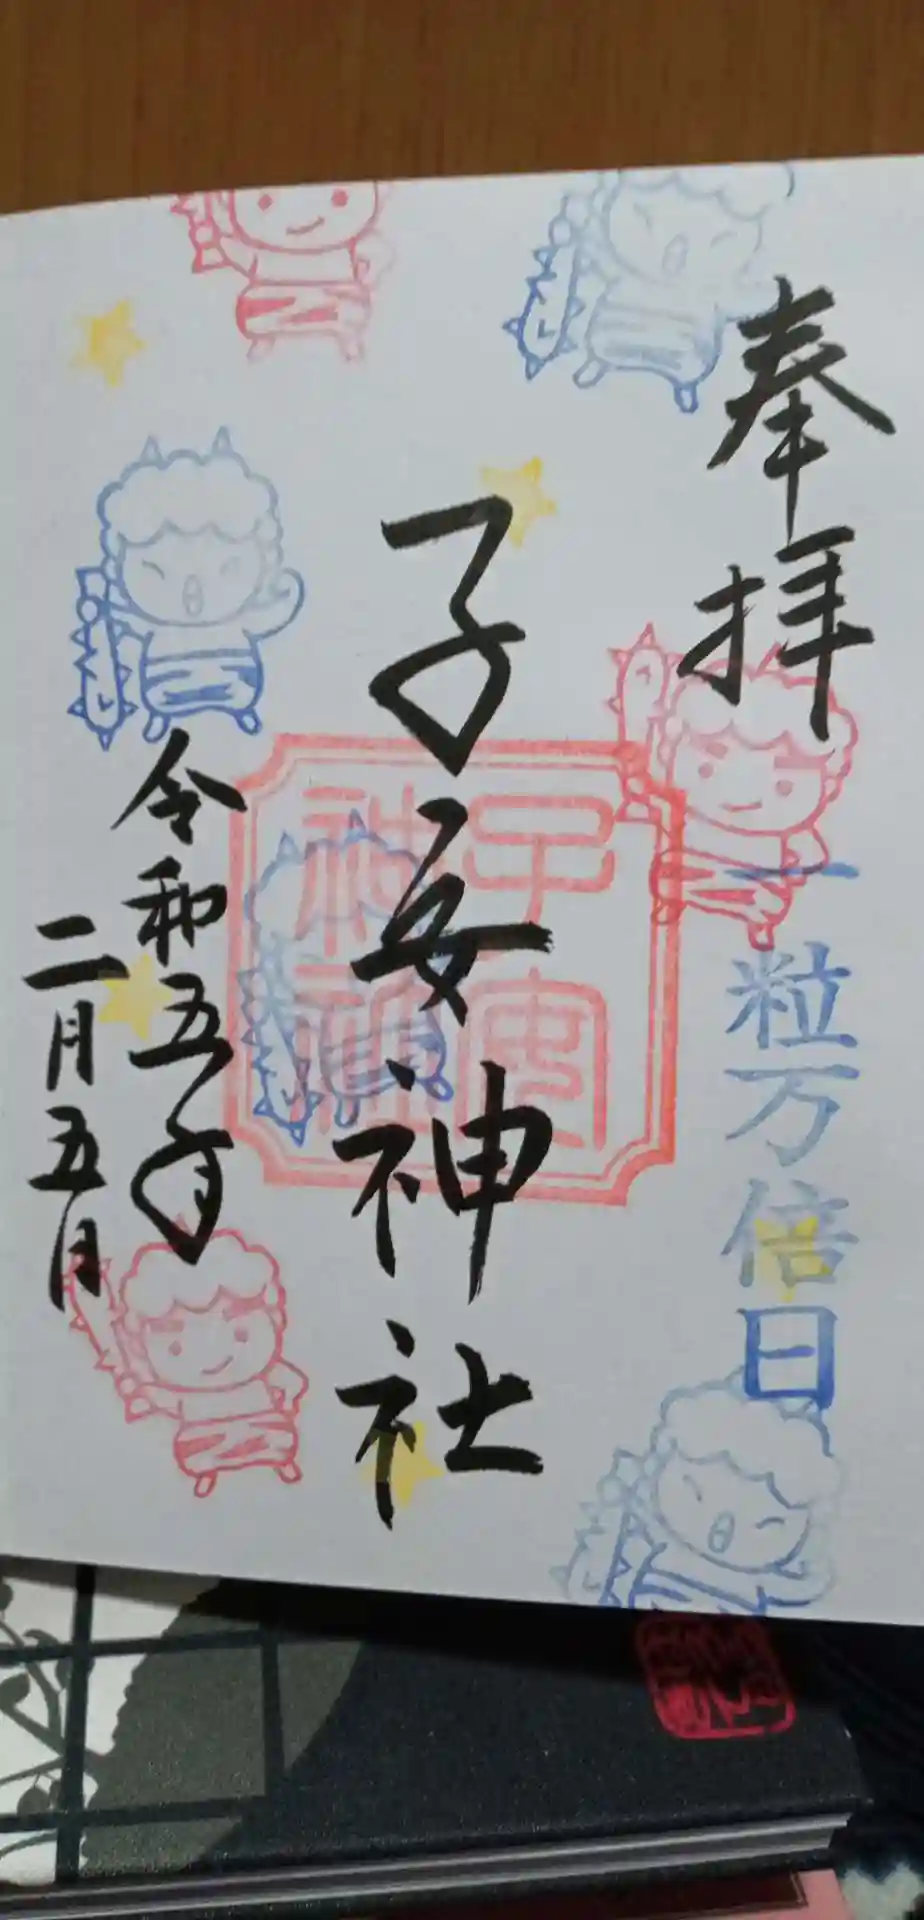 奉拝
一粒万倍日
子安神社
子安
神社
令和五年
二月五日